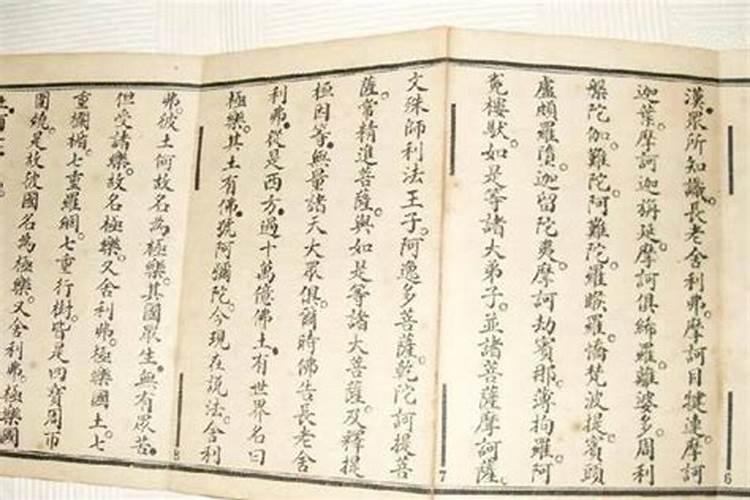 漢。眾所知識。長老舍利弗。摩訶目犍連。摩訶
迦葉。摩訶迦旃延。摩訶俱絺羅。離婆多。周利
槃陀伽。難陀。阿難陀。羅睺羅。憍梵波提。賓頭
盧頗羅隋。迦留陀夷。摩訶劫賓那。薄拘羅。阿
㝹樓馱。如是等諸大弟子。並諸菩薩摩訶薩。
文殊師利法王子。阿逸多菩薩。乾陀訶提菩
薩。常精進菩薩。與如是等諸大菩薩。及釋提
桓因等。無量諸天大眾俱。爾時佛告長老舍
利弗。從是西方。過十萬億佛土。有世界名曰
極樂。其土有佛。號阿彌陀。今現在說法。舍利
弗。彼土何故名為極樂。其國眾生。無有眾苦。
但受諸樂。故名極樂。又舍利弗。極樂國土。七
重欄楯。七重羅網。七重行樹。皆是四寶周帀
圍繞。是故彼國名為極樂。又舍利弗。極樂國
6
7
8